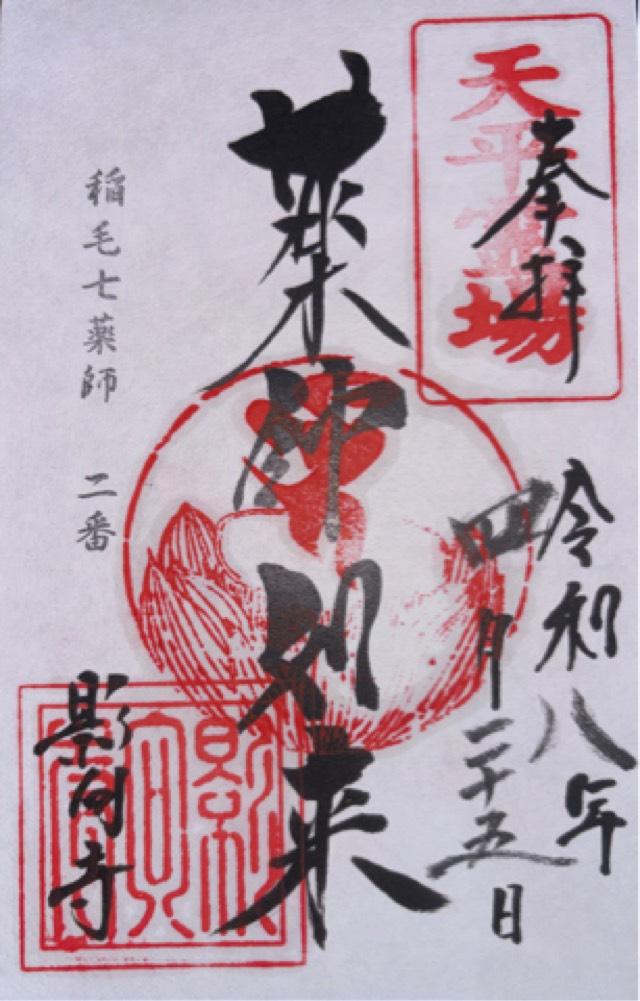 天平霊場
奉拝
令和八年
四月二十五日
薬師如来
稲毛七薬師 二番
影向寺